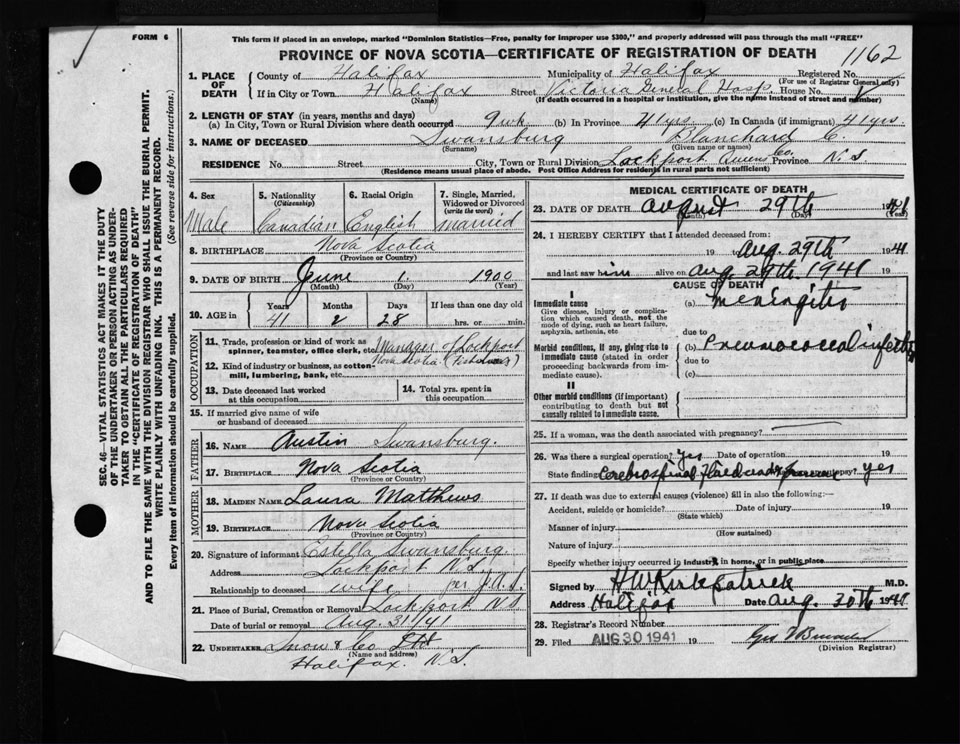 FORM 6
This form if placed in an envelope, marked "Dominion Statistics—Free, penalty for improper use $300," and properly addressed will pass through the mail "FREE"
PROVINCE OF NOVA SCOTIA—CERTIFICATE OF REGISTRATION OF DEATH
1162
1. PLACE OF DEATH
County of Halifax Municipality of Halifax Registered No.
(For use of Registrar General only)
If in City or Town Halifax Street Victoria General Hosp. House No.
(Name) (If death occurred in a hospital or institution, give the name instead of street and number)
2. LENGTH OF STAY (in years, months and days)
(a) In City, Town or Rural Division where death occurred 9 wk (b) In Province 41 yrs. (c) In Canada (if immigrant) 41 yrs
3. NAME OF DECEASED Swansburg Blanchard C.
(Surname) (Given name or names)
RESIDENCE No. Street City, Town or Rural Division Lockport Queens Co. Province N.S
(Residence means usual place of abode. Post Office Address for residents in rural parts not sufficient)
4. Sex Male
5. Nationality (Citizenship) Canadian
6. Racial Origin English
7. Single, Married, Widowed or Divorced (write the word) married
8. BIRTHPLACE Nova Scotia
(Province or Country)
9. DATE OF BIRTH June 1. 1900
(Month) (Day) (Year)
10. AGE IN Years 41 Months 2 Days 28 If less than one day old hrs. or min.
OCCUPATION
11. Trade, profession or kind of work as spinner, teamster, office clerk, etc. Manager of Lockport
12. Kind of industry or business, as cotton-mill, lumbering, bank, etc. Nova Scotia
13. Date deceased last worked at this occupation
14. Total yrs. spent in this occupation
15. If married give name of wife or husband of deceased
FATHER
16. NAME Austin Swansburg.
17. BIRTHPLACE Nova Scotia
MOTHER
18. MAIDEN NAME Laura Matthews
19. BIRTHPLACE Nova Scotia
(Province or Country)
20. Signature of informant Estella Swansburg.
Address Lockport N.S
Relationship to deceased wife per
21. Place of Burial, Cremation or Removal Lockport N.S
Date of burial or removal Aug. 31/41
22. UNDERTAKER Snow & Co Ltd
(Name and address)
Halifax. N.S.
MEDICAL CERTIFICATE OF DEATH
23. DATE OF DEATH August 29th 1941
(Month) (Day) (Year)
24. I HEREBY CERTIFY that I attended deceased from:
19 Aug. 29th 1941
and last saw him alive on Aug. 29th 1941 19
CAUSE OF DEATH
I
Immediate cause
Give disease, injury or complication which caused death, not the mode of dying, such as heart failure, asphyxia, asthenia, etc
(a) meningitis
due to
Morbid conditions, if any, giving rise to immediate cause (stated in order proceeding backwards from immediate cause).
(b) Pneumococcal infection
due to
(c)
II
Other morbid conditions (if important) contributing to death but not causally related to immediate cause.
25. If a woman, was the death associated with pregnancy?
26. Was there a surgical operation? Yes Date of operation 19
State findings Cerebrospinal fluid autopsy? yes
27. If death was due to external causes (violence) fill in also the following:—
Accident, suicide or homicide? Date of injury 19
(State which)
Manner of injury
(How sustained)
Nature of injury
Specify whether injury occurred in industry, in home, or in public place
Signed by H W Kirkpatrick M.D.
Address Halifax Date Aug. 30th 1941
28. Registrar's Record Number
29. Filed AUG 30 1941 19
(Division Registrar)
SEC. 46—VITAL STATISTICS ACT MAKES IT THE DUTY
OF THE UNDERTAKER OR PERSON ACTING AS UNDER-
TAKER TO OBTAIN ALL THE PARTICULARS REQUIRED
IN THE "CERTIFICATE OF REGISTRATION OF DEATH"
AND TO FILE THE SAME WITH THE DIVISION REGISTRAR WHO SHALL ISSUE THE BURIAL PERMIT.
WRITE PLAINLY WITH UNFADING INK. THIS IS A PERMANENT RECORD.
Every item of information should be carefully supplied. (See reverse side for instructions.)